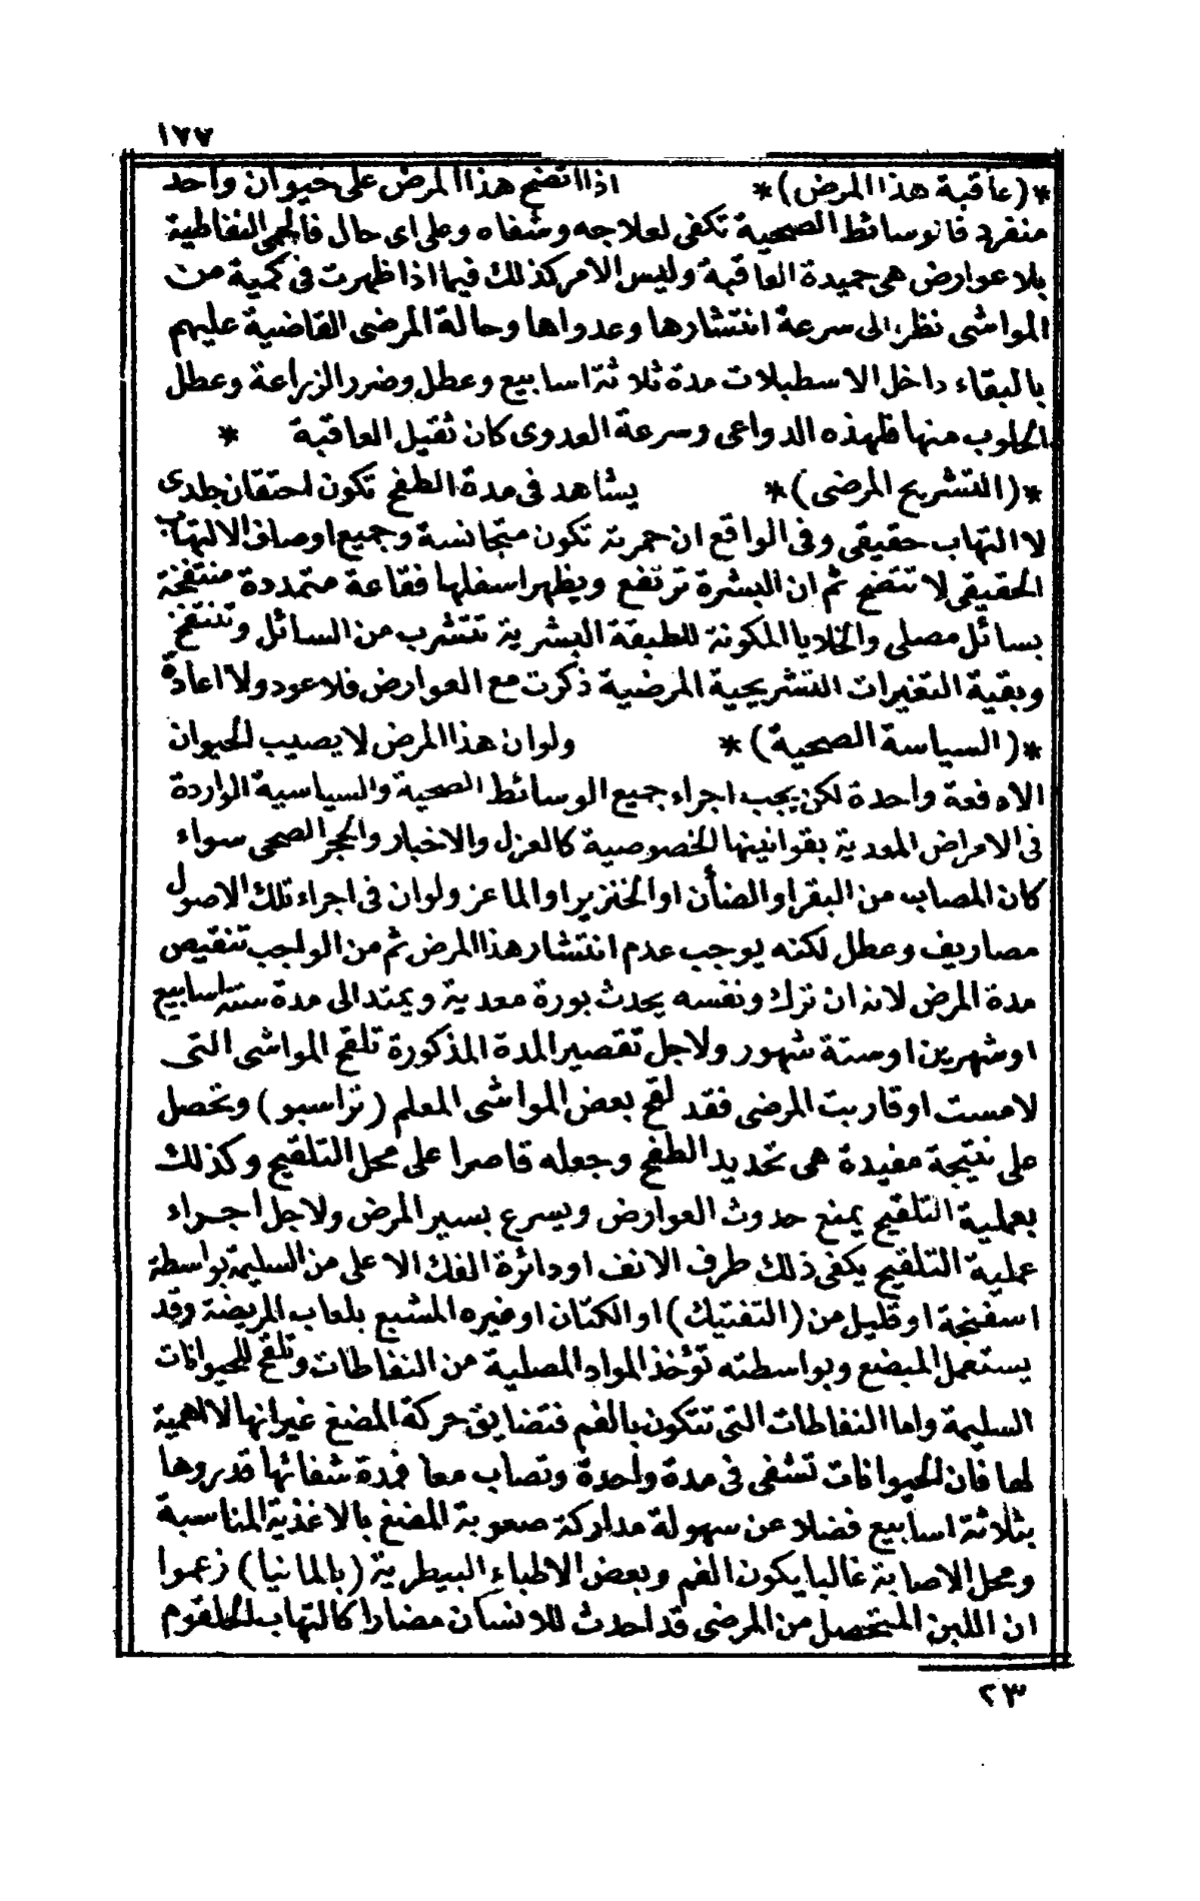 ١٧٧
*(عاقبة هذا المرض)* اذا اتضح هذا المرض على حيوان واحد
منفرد فالوسائط الصحية تكفى لعلاجه وشفاه وعلى اى حال فالحمى النفاطية
بلا عوارض هى حميدة العاقبة وليس الامر كذلك فيما اذا ظهرت فى كمية من
المواشى نظر الى سرعة انتشارها وعدواها وحالة المرضى القاضية عليهم
بالبقاء داخل الاسطبلات مدة ثلاثة اسابيع وعطل وضرر الزراعة وعطل
الحلوب منها فلهذه الدواعى وسرعة العدوى كان ثقيل العاقبة *
*(التشريح المرضى)* يشاهد فى مدة الطفح تكون احتقان جلدى
لا التهاب حقيقى وفى الواقع ان حمرته تكون متجانسة وجميع اوصاف الالتهاب
الحقيقى لا تتضح ثم ان البشرة ترتفع ويظهر اسفلها فقاعة متمددة منتفخة
بسائل مصلى والخلايا المكونة للطبقة البشرية تتشرب من السائل وتنتفخ
وبقية التغيرات التشريحية المرضية ذكرت مع العوارض فلا عود ولا اعادة
*(السياسة الصحية)* ولو ان هذا المرض لا يصيب الحيوان
الا دفعة واحدة لكن يجب اجراء جميع الوسائط الصحية والسياسية الواردة
فى الامراض المعدية بقوانينها الخصوصية كالعزل والاخبار والحجر الصحى سواء
كان المصاب من البقر او الضأن او الخنزير او الماعز ولو ان فى اجراء تلك الاصول
مصاريف وعطل لكنه يوجب عدم انتشار هذا المرض ثم من الواجب تنقيص
مدة المرض لانه ان ترك ونفسه يحدث بورة معدية ويمتد الى مدة ستة اسابيع
او شهرين او ستة شهور ولاجل تقصير المدة المذكورة تلقح المواشى التى
لامست او قاربت المرضى فقد لقح بعض المواشى المعلم (تراسبو) وتحصل
على نتيجة مفيدة هى تحديد الطفح وجعله قاصرا على محل التلقيح وكذلك
بعملية التلقيح يمنع حدوث العوارض ويسرع بسير المرض ولاجل اجراء
عملية التلقيح يكفى ذلك طرف الانف او دائرة الفك الاعلى من السليمة بواسطة
اسفنجة او قليل من (التفتيك) او الكتان او غيره المشبع بلعاب المريضة وقد
يستعمل المبضع وبواسطته تؤخذ المواد المصلية من النفاطات وتلقح للحيوانات
السليمة واما النفاطات التى تتكون بالفم فتضايق حركة المضغ غير انها لا اهمية
لها فان الحيوانات تشفى فى مدة واحدة وتصاب معا فمدة شفائها قدروها
بثلاثة اسابيع فضلا عن سهولة مداركة صعوبة المضغ بالاغذية المناسبة
ومحل الاصابة غالبا يكون الفم وبعض الاطباء البيطرية (بالمانيا) زعموا
ان اللبن المتحصل من المرضى قد احدث للانسان مضارا كالتهاب الحلقوم
٢٣